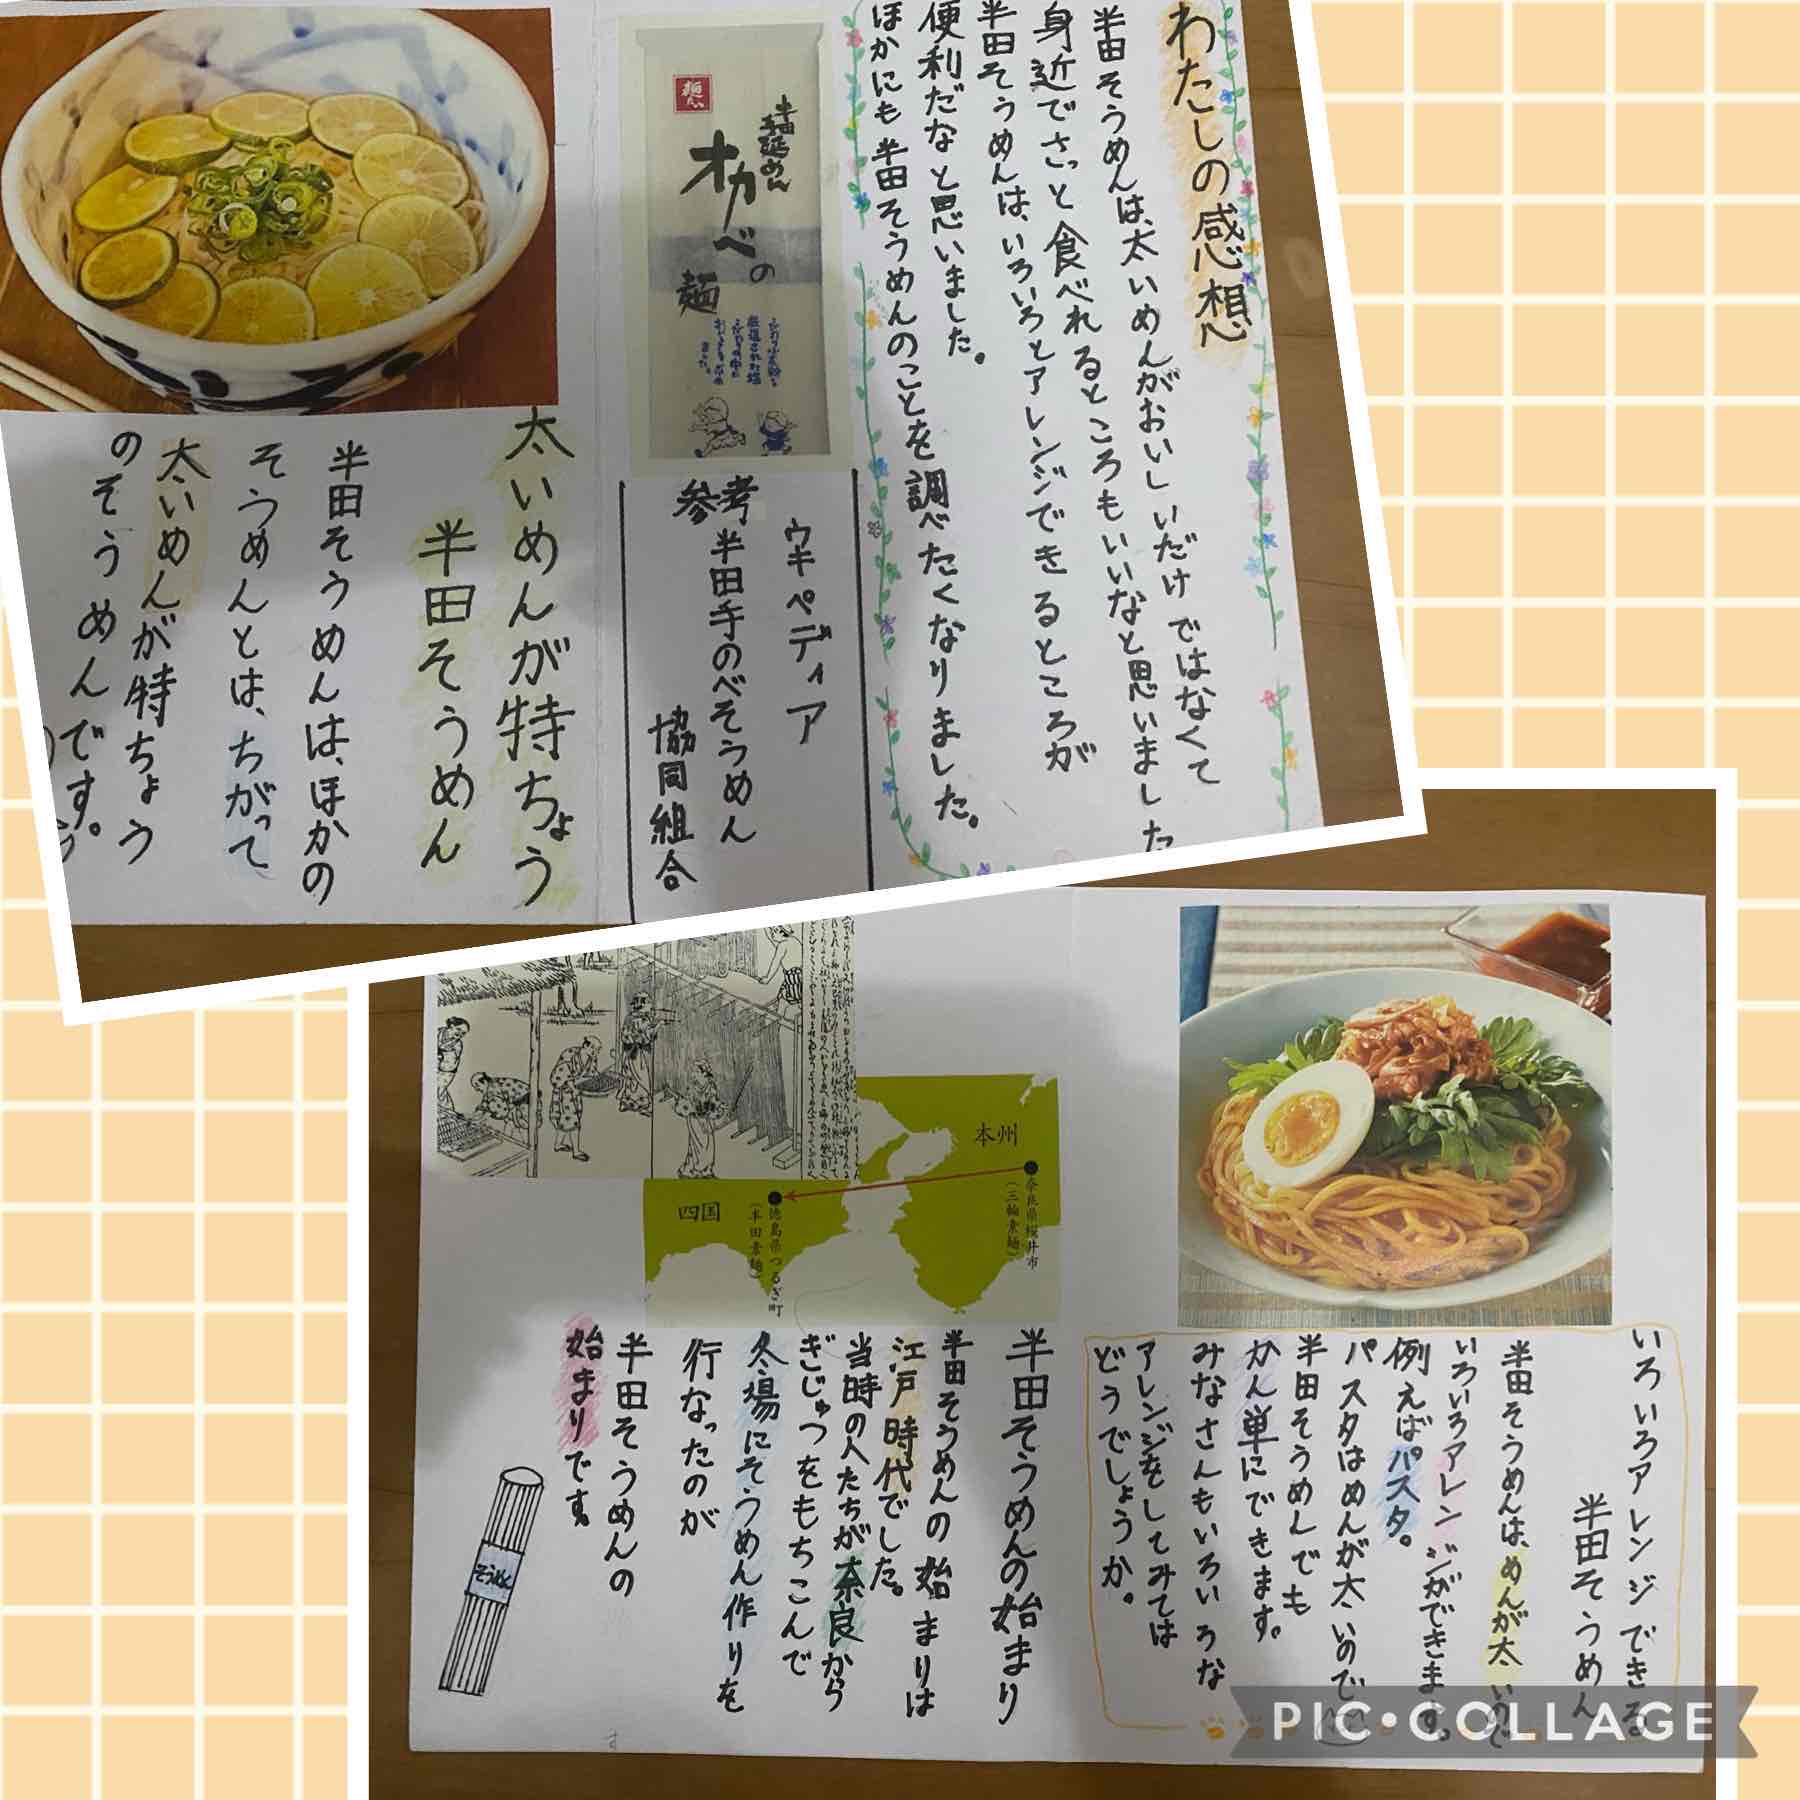 わたしの感想
半田そうめんは、太いめんがおいしいだけではなくて
身近でさっと食べれるところもいいなと思いました
半田そうめんは、いろいろとアレンジできるところが
便利だなと思いました。
ほかにも半田そうめんのことを調べたくなりました。
半田手延めん
オカベの
麺
参考
ウキペディア
半田手のべそうめん
協同組合
太いめんが特ちょう
半田そうめん
半田そうめんは、ほかの
そうめんとは、ちがって
太いめんが特ちょう
のそうめんです。
いろいろアレンジできる
半田そうめん
半田そうめんは、めんが太いので
いろいろアレンジができます。
例えばパスタ。
パスタはめんが太いので
半田そうめんでも
かん単にできます。
みなさんもいろいろな
アレンジをしてみては
どうでしょうか。
本州
奈良県桜井市
(三輪素麺)
四国
徳島県つるぎ町
(半田素麺)
半田そうめんの始まり
半田そうめんの始まりは
江戸時代でした。
当時の人たちが奈良から
ぎじゅつをもちこんで
冬場にそうめん作りを
行なったのが
半田そうめんの
始まりです。
そうめん
PIC•COLLAGE